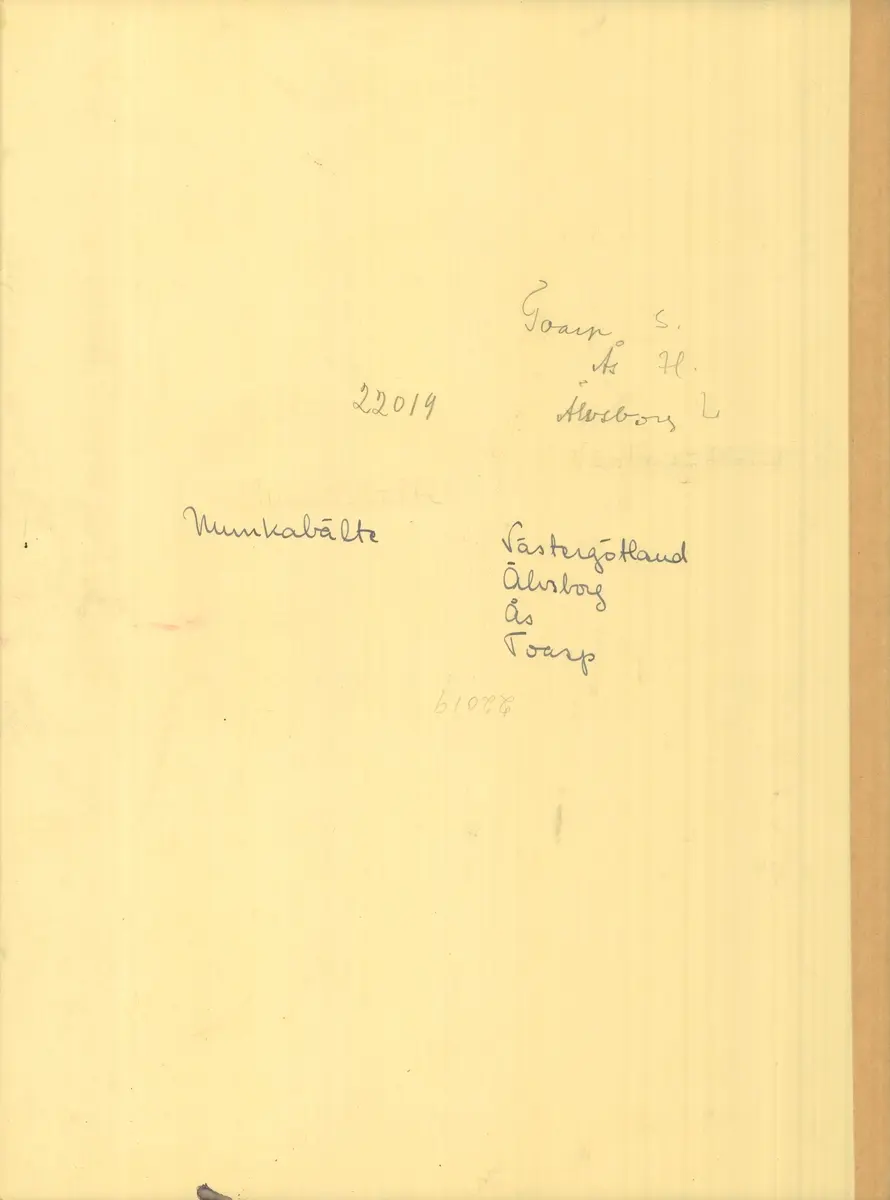 Toarp S.
Ås H.
22019 Älvsborg L
Munkabälte
Västergötland
Älvsborg
Ås
Toarp
22019